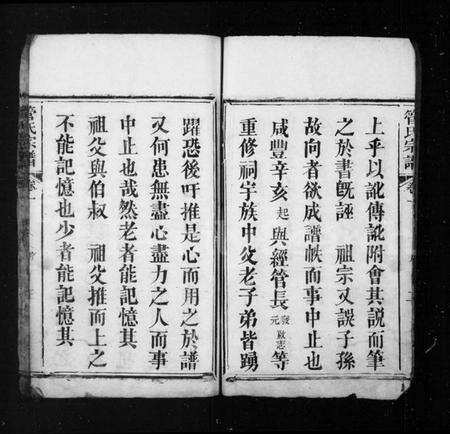 管氏宗譜
卷一
上乎以訛傳訛附會其說而筆
之於書既誣　祖宗又誤子孫
故向者欲成譜帙而事中止也
咸豐辛亥起與經管長發啟志元等
重修祠宇族中父老子弟皆踴
躍恐後吁推是心而用之於譜
又何患無盡心盡力之人而事
中止也哉然老者能記憶其
祖父與伯叔　祖父推而上之
不能記憶也少者能記憶其
管氏宗譜
卷一